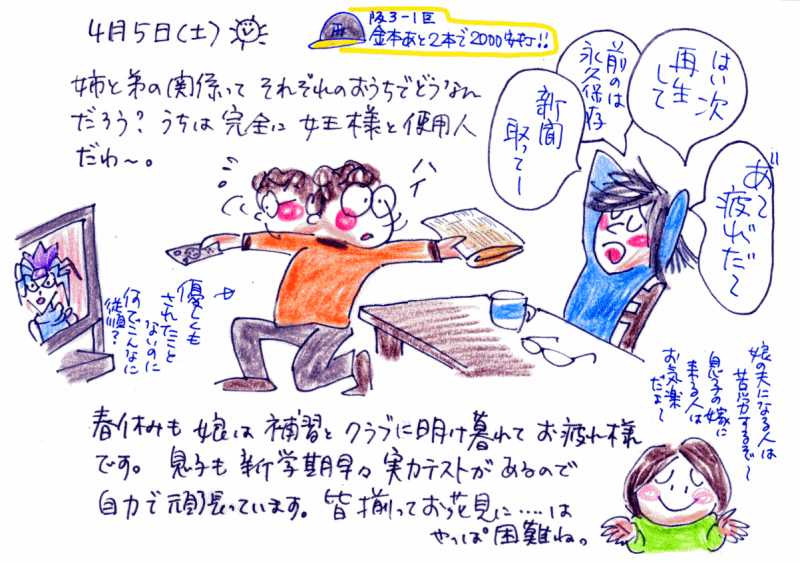 4月5日(土)
阪3-1巨
金本あと2本で2000安打!!
姉と弟の関係って それぞれのおうちでどうなん
だろう? うちは 完全に 女王様と使用人
だわ〜。
はい次
再生
して
前のは
永久保存
新聞
取ってー
あ゛〜
疲れだ〜
ハイ
優しくも
されたこと
ないのに
何でこんなに
従順?
娘の夫になる人は
苦労するぞ〜
息子の嫁に
来る人は
お気楽
だよ〜
春休みも 娘は 補習と クラブに明け暮れて お疲れ様
です。 息子も 新学期早々 実力テストがあるので
自力で頑張っています。 皆 揃ってお花見に……は
やっぱ 困難ね。